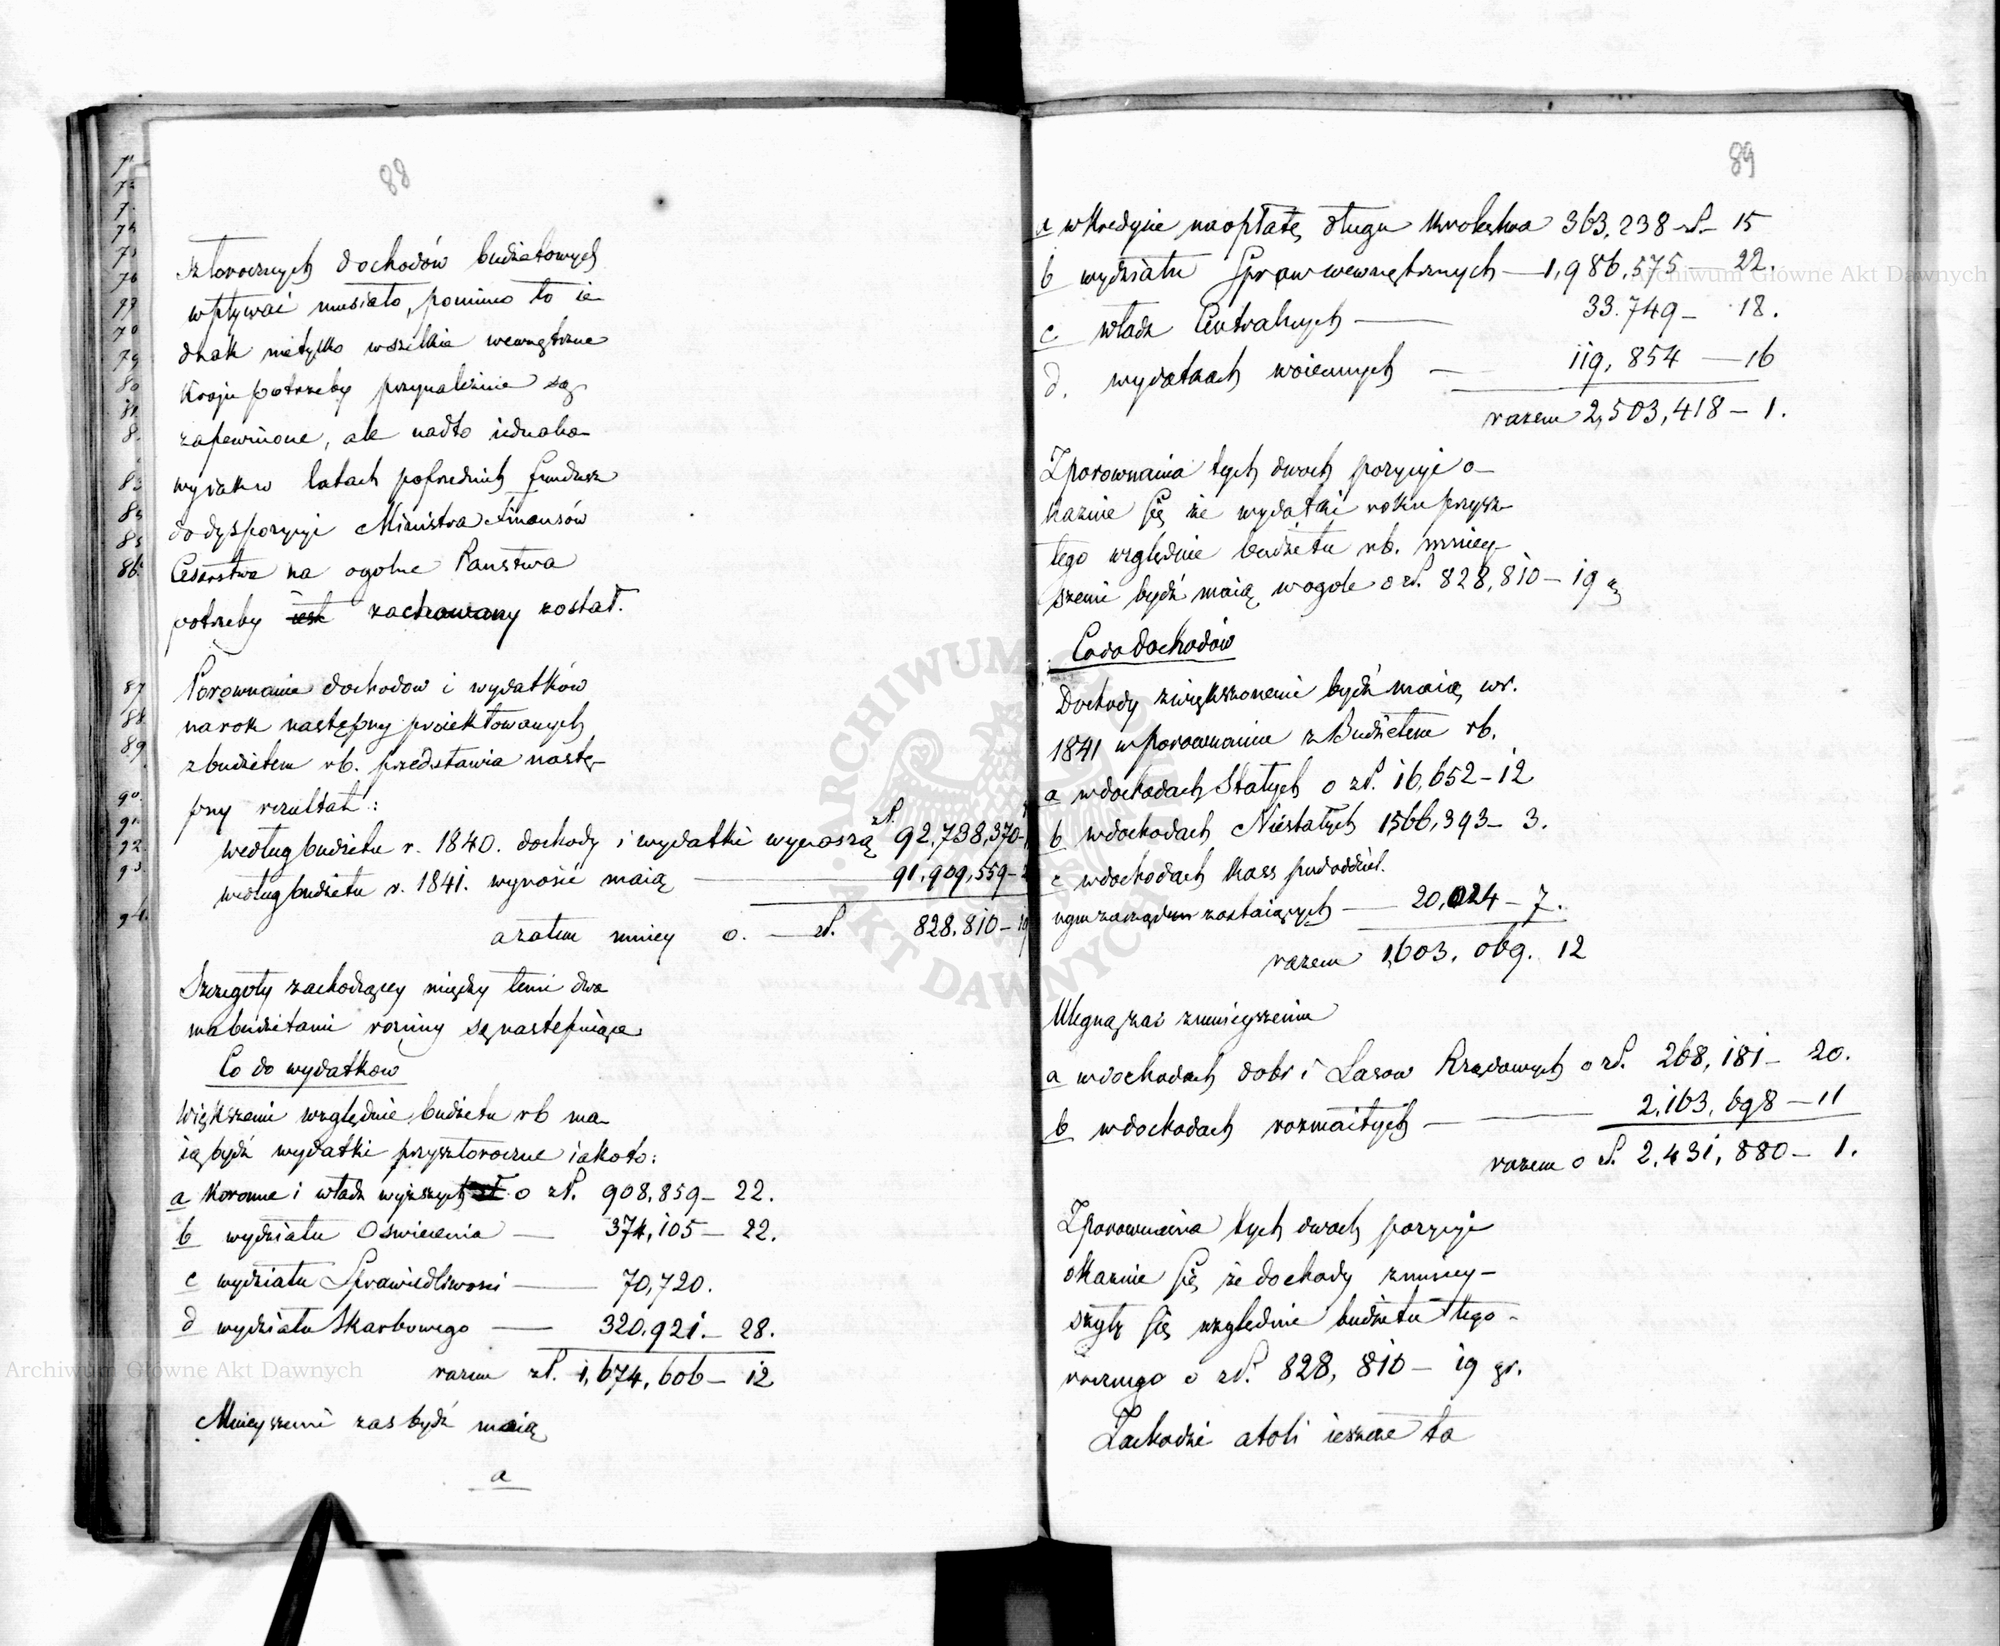 88
sztorocznych dochodów budżetowych
wpływać musiało, pomimo to ie-
dnak nietylko wszelkie wewnętrzne
Kraju potrzeby przynależnie są
zapewnione, ale nadto iednako-
wy iak w latach poprzednich fundusz
do dyspozycyi Ministra Finansów
Cesarstwa na ogolne Państwa
potrzeby iest zachowany został.
Porownanie dochodow i wydatków
na rok następny proiektowanych
z budżetem rb. przedstawia nastę-
pny rezultat:
według budżetu r. 1840. dochody i wydatki wynoszą zł. 92,738,370-
według budżetu r. 1841. wynosić maią 91,909,559-
a zatem mniey o. — zł. 828,810-19
Szczegoły zachodzącey między temi dwo-
ma budżetami rożnicy są następuiące
Co do wydatkow
Większemi względnie budżetu rb ma-
ią bydź wydatki przyszłoroczne iakoto:
a Koronne i władz wyższych o zł. 908,859- 22.
b wydziału Oswiecenia — 374,105- 22.
c wydziału Sprawiedliwosci — 70,720.
d wydziału Skarbowego — 320,921.- 28.
razem zł. 1,674,606- 12
Mnieyszemi zas bydź maią
a
89
a w Kredycie na opłatę długu Krolestwa 363,238 zł- 15
b wydziału Spraw wewnętrznych — 1,986,575- 22.
c władz Centralnych — 33.749- 18.
d. wydatkach woiennych — 119,854 — 16
razem 2,503,418- 1.
Z porownania tych dwoch pozycyi o-
kazuie się że wydatki roku przysz-
łego względnie budżetu rb. mniey-
szemi bydź maią w ogole o zł. 828,810- 19
Co do dochodów
Dochody zwiększonemi bydź maią w r.
1841 w porownaniu z Budżetem rb.
a w dochodach Stałych o zł. 16,652- 12
b w dochodach Niestałych 1566,393- 3.
c w dochodach Kass pod oddziel-
nym zarządem zostaiących — 20,024- 7.
razem 1,603,069. 12
Ulegną zas zmnieyszeniu
a w dochodach dobr i Lasow Rządowych o zł. 268,181- 20.
b w dochodach rozmaitych — 2,163,698- 11
razem o zł. 2,431,880- 1.
Z porownania tych dwoch pozycyi
okazuie się że dochody zmniey-
szyły się względnie budżetu tego-
rocznego o zł. 828,810- 19 gr.
Zachodzi atoli ieszcze ta
ARCHIWUM GŁÓWNE AKT DAWNYCH
Archiwum Główne Akt Dawnych
Archiwum Główne Akt Dawnych